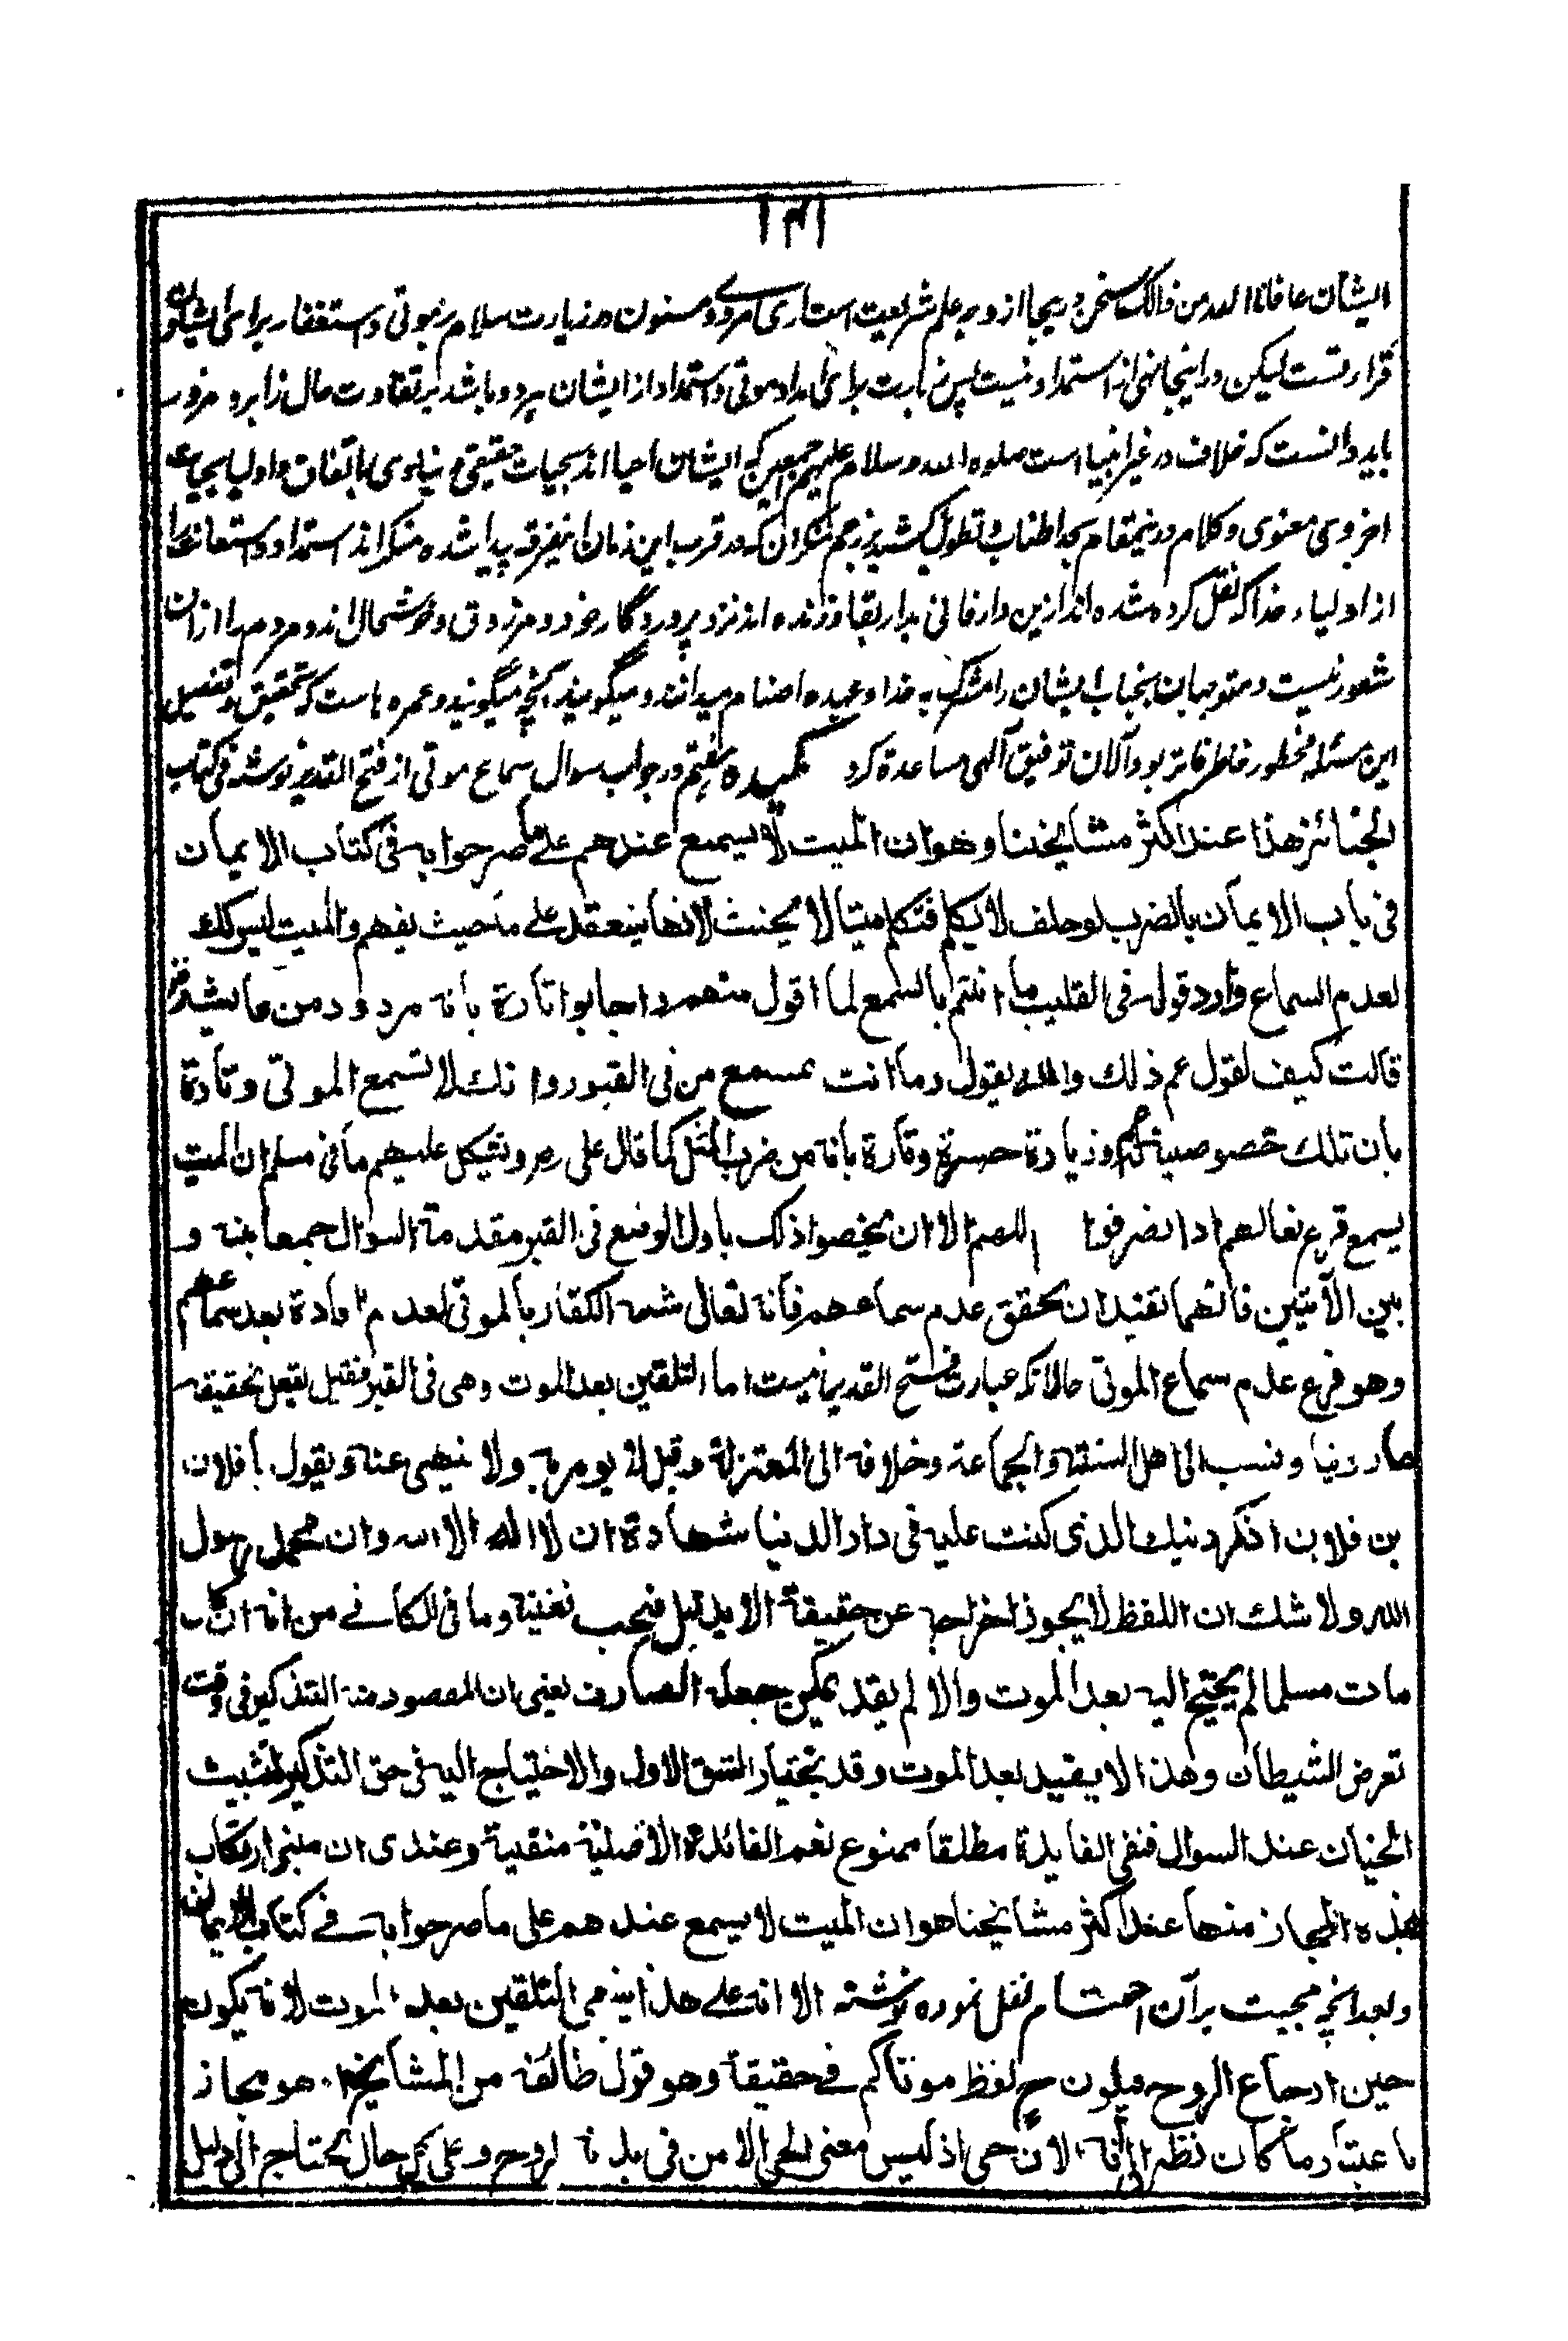 ۱۳۱
ایشان عافانا الله من ذالک سخن و بیجا از دیر علم شریعت است آری مروی و مسنون در زیارت سلام بر موتی و استغفار برای ایشان و
قرارتست لیکن در اینجا نهی از استمداد نیست پس زیارت برای امداد موتی و استمداد از ایشان هر دو باشد بر تفاوت حال زائر و مزور
باید دانست که خلاف در غیر انبیا است صلوة الله و سلامه علیهم اجمعین که ایشان احیا اند بحیات حقیقی دنیاوی باتفاق و اولیا بحیات
اخروی معنوی و کلام درین مقام بحد اطناب و تطویل کشید بر رغم منکران که در قرب این زمان این فرقه پیدا شده منکر اند استمداد و استعانت را
از اولیاء خدا که نقل کرده شده اند ازین دار فانی بدار بقا و زنده اند نزد پروردگار خود و مرزوق و خوشحال اند و مردم را ازان
شعور نیست و متوجهان بجناب ایشان را مشرک به خدا و عبده اصنام میدانند و میگویند آنچه میگویند و عمرها است که تحقیق و تفصیل
این مسئله مخطور خاطر فاتر بود و آلان توفیق آلهی مساعدة کرد کیده هفتم در جواب سوال سماع موتی از فتح القدیر نوشته فی کتاب
الجنائز هذا عند اکثر مشایخنا و هو ان المیت لا یسمع عندهم علی ما صرحوا به فی کتاب الایمان
فی باب الایمان بالضرب لو حلف لا یکلم فتکلم میتا لا یحنث لانها ینعقد علی ما حیث یفهم و المیت لیس کذلک
لعدم السماع و اورد قوله فی القلیب ما انتم باسمع لما اقول منهم و اجابوا تارة بانه مردود من عایشة رض
قالت کیف یقول عم ذلک و الله یقول و ما انت بمسمع من فی القبور و انک لا تسمع الموتی و تارة
بان تلک خصوصیة له و زیادة حسرة و تارة بانه من ضرب المثل کما قال علی رض و یشکل علیهم ما فی مسلم ان المیت
یسمع قرع نعالهم اذا انصرفوا اللهم الا ان یخصوا ذلک باول الوضع فی القبر مقدمة السوال جمعا بینه و
بین الآیتین فانهما تفیدان تحقق عدم سماعهم فانه تعالی شبه الکفار بالموتی لعدم افادة بعد سماعهم
وهو فرع عدم سماع الموتی حالانکه عبارت فتح القدیر اینست اما التلقین بعد الموت وهی فی القبر فقیل یفعل بحقیقه
ما روینا و نسب الی اهل السنة و الجماعة و خلافه الی المعتزلة و قیل لا یومر به ولا ینهی عنه و یقول یا فلان
بن فلان اذکر دینک الذی کنت علیه فی دار الدنیا شهادة ان لا اله الا الله وان محمد رسول
الله ولا شک ان اللفظ لا یجوز اخراجه عن حقیقة الا بدلیل فیجب تعینه وما فی الکافے من انه ان کان
مات مسلما لم یحتج الیه بعد الموت والا لم یفد یمکن جعله الصارف یعنی ان المقصود منه التذکیر فی وقت
تعرض الشیطان وهذا لا یفید بعد الموت و قد یختیار الشق الاول و الاحتیاج الیه فی حق التذکیر لتثبیت
الجنان عند السوال فنفی الفایدة مطلقا ممنوع نعم الفائدة الاصلیة منفیة و عندی ان مبنی ارتکاب
هذه المجاز منها عند اکثر مشایخنا هو ان المیت لا یسمع عندهم علی ما صرحوا به فے کتاب الایمان
و بعد آنچه مجیب بر آن احتشام نقل نموده نوشته الا انه علے هذا ینبغی التلقین بعد الموت لانه یکون
حین ارجاع الروح فیکون ح لفظ موتاکم فے حقیقة وهو قول طائفة من المشایخ او هو مجاز
باعتبار ما کان نظرا الی انه الان حی اذ لیس معنی الحی الا من فی بدنه الروح و علی کل حال یحتاج الی دلیل